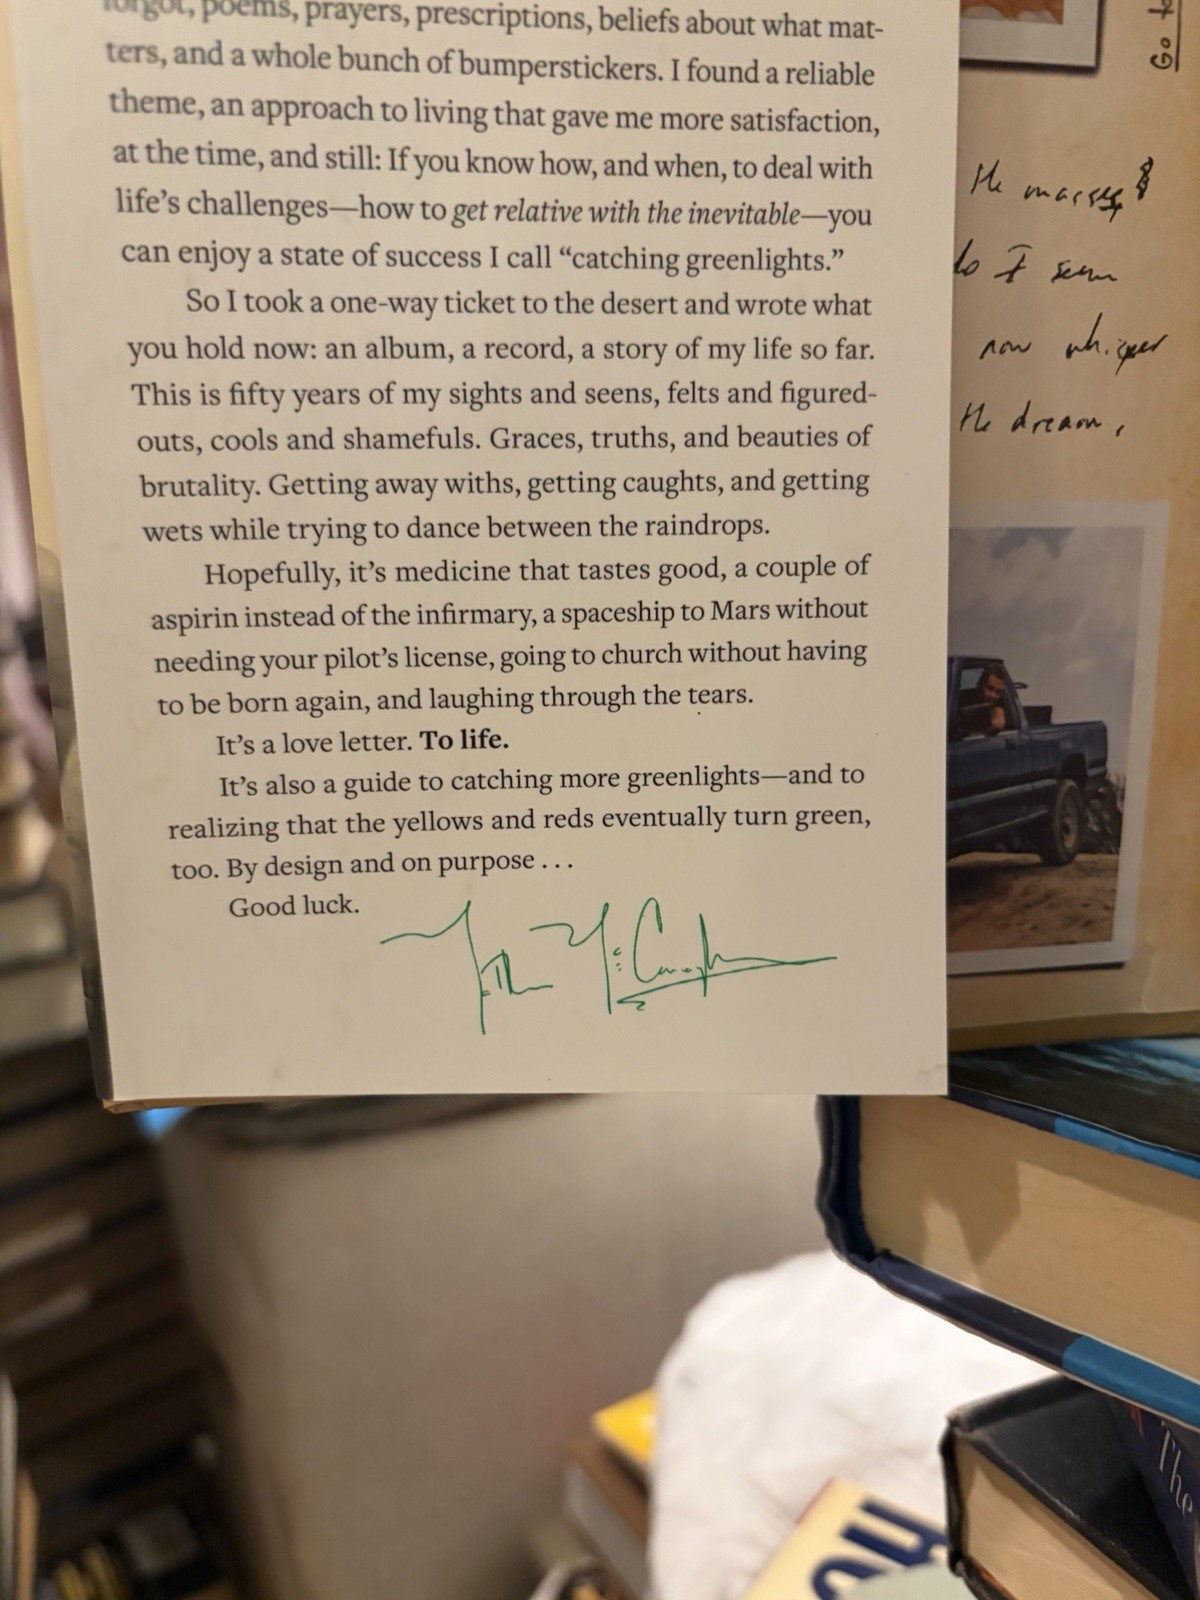 forgot, poems, prayers, prescriptions, beliefs about what mat-
ters, and a whole bunch of bumperstickers. I found a reliable
theme, an approach to living that gave me more satisfaction,
at the time, and still: If you know how, and when, to deal with
life's challenges—how to get relative with the inevitable—you
can enjoy a state of success I call “catching greenlights.”
So I took a one-way ticket to the desert and wrote what
you hold now: an album, a record, a story of my life so far.
This is fifty years of my sights and seens, felts and figured-
outs, cools and shamefuls. Graces, truths, and beauties of
brutality. Getting away withs, getting caughts, and getting
wets while trying to dance between the raindrops.
Hopefully, it's medicine that tastes good, a couple of
aspirin instead of the infirmary, a spaceship to Mars without
needing your pilot's license, going to church without having
to be born again, and laughing through the tears.
It's a love letter. To life.
It's also a guide to catching more greenlights—and to
realizing that the yellows and reds eventually turn green,
too. By design and on purpose . . .
Good luck.
Go to
the masses
do I seem
now whisper
the dream,
The